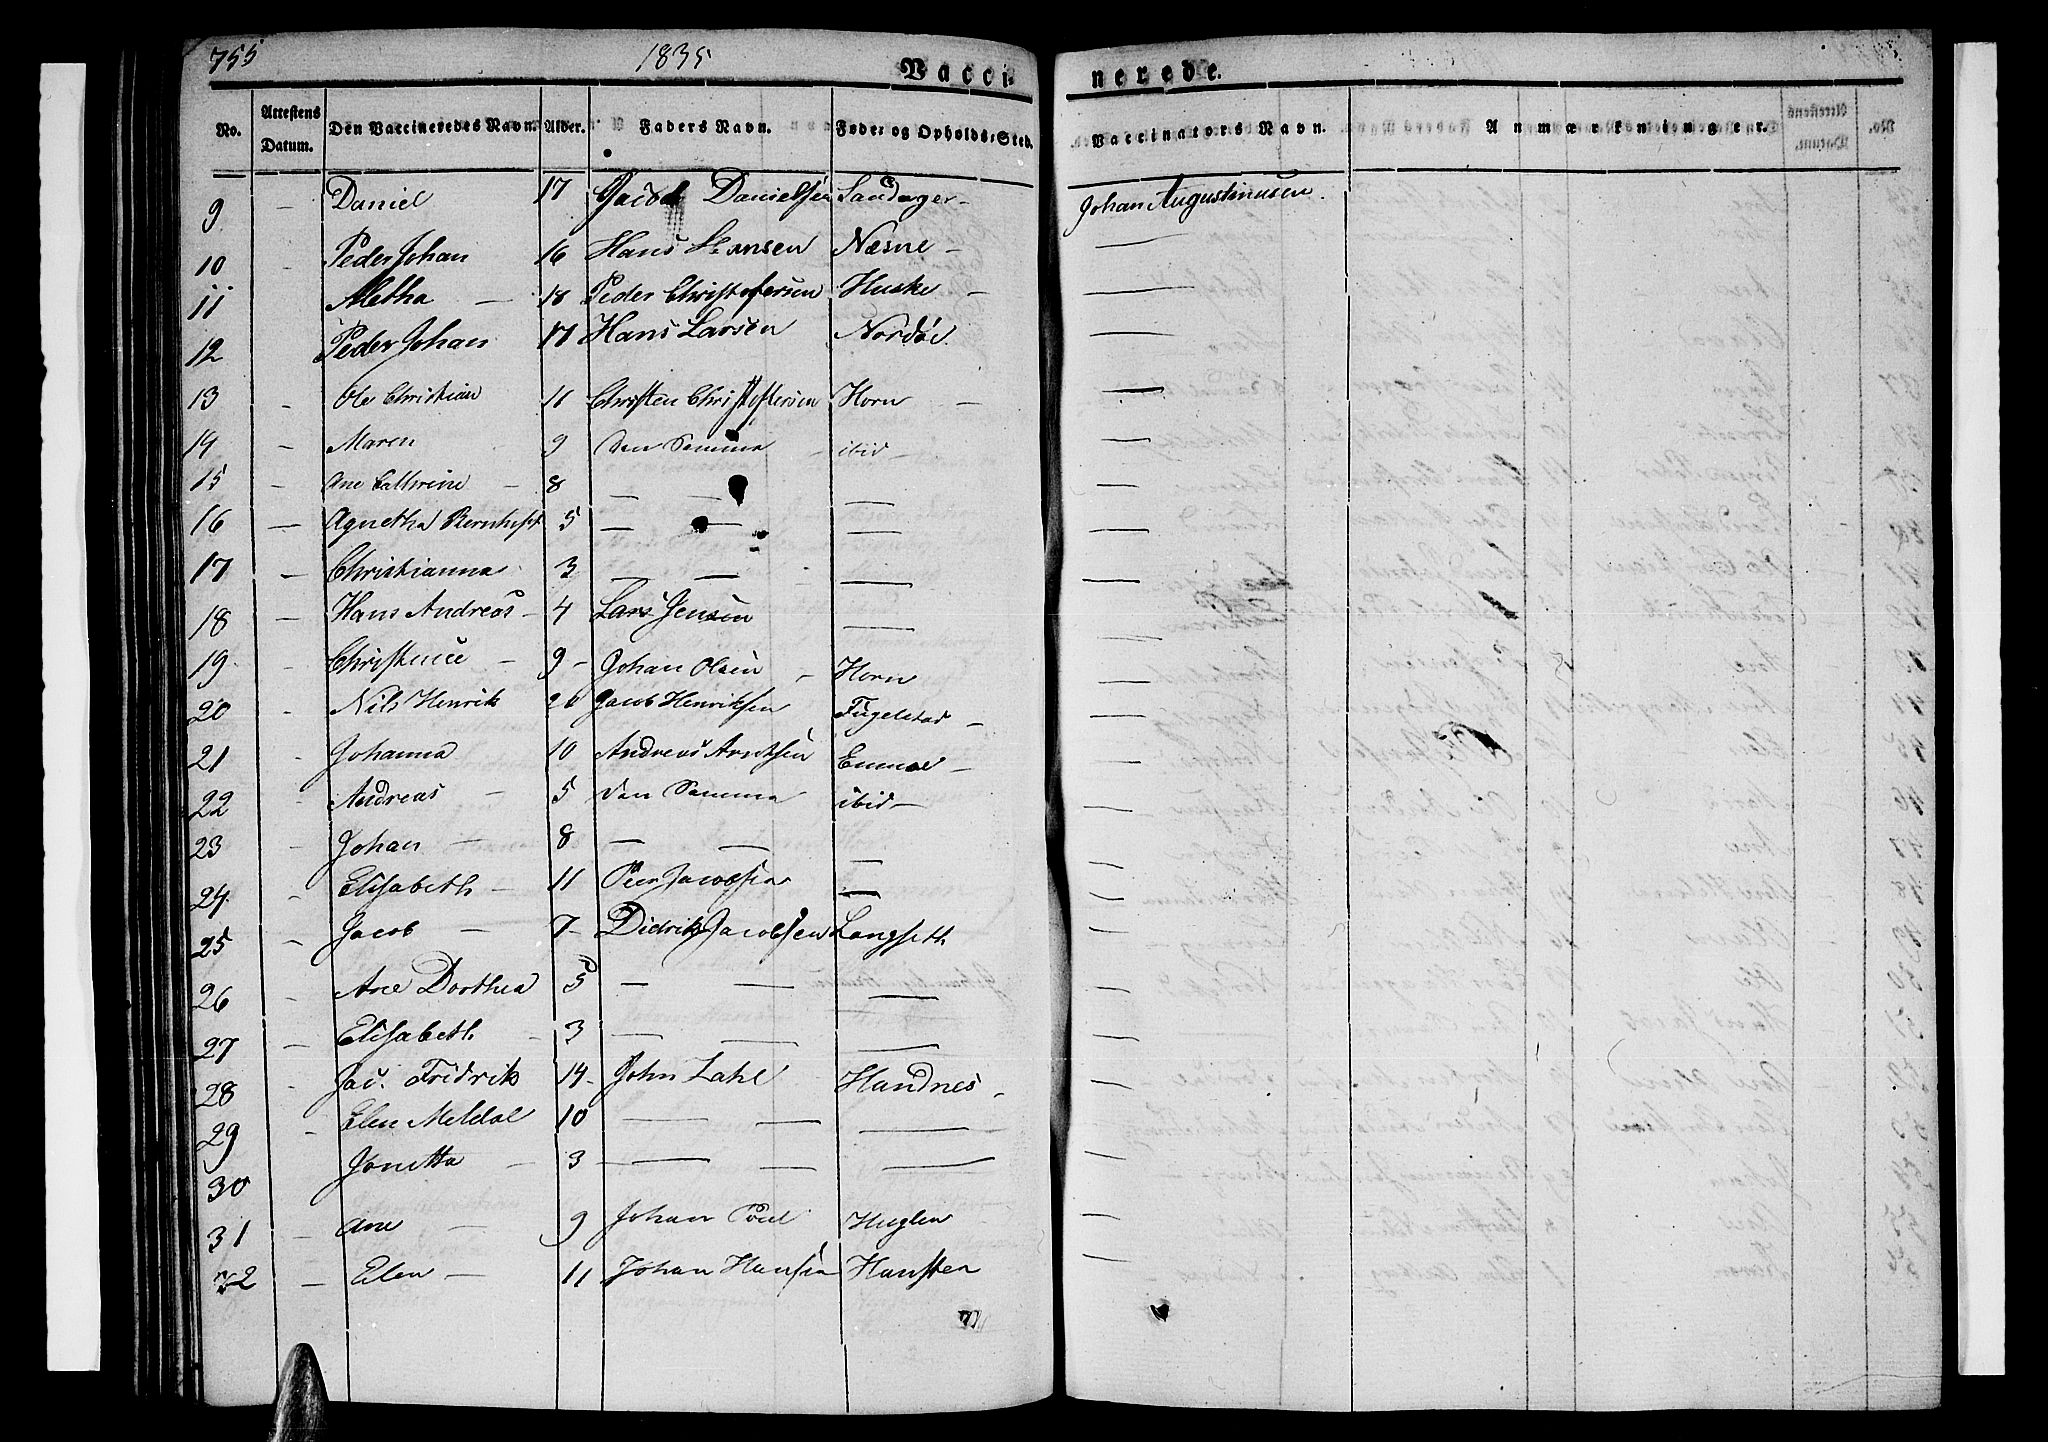 755 1835 Vacci- nerede.
No. Attestens Datum. Den Vaccineredes Navn. Alder. Faders Navn. Føde- og Opholds-Sted. Vaccinators Navn. Anmærkninger.
9 — Daniel 17 Jacob Danielsen Sandager — Johan Augustinusen
10 - Peder Johan 16 Hans Hansen Næsne — —
11 - Aletha — 18 Peder Christofersen Huske — —
12 Peder Johan 17 Hans Larsen Nordøe —
13 - Ole Christian 11 Christen Christofersen Horn — —
14 - Maren 9 Den Samme - ibid — —
15 - Ane Cathrine - 8 — — — —
16 — Agnetha Bernhoft 5 — — — —
17 — Christianna 3 — — — —
18 — Hans Andreas — 4 Lars Jensen — —
19 - Christence — 9 - Johan Olsen - Horn —
20 - Nils Henrik 26 Jacob Henriksen Fugelstad — —
21 - Johanna 10 Andreas Arntsen — —
22 - Andreas — 5 Den Samme ibid — —
23 - Johan — 8 — — —
24 - Elisabeth — 11 Peer Jacobsen — —
25 - Jacob — 7 - Didrik Jacobsen Langseth —
26 — Ane Dorthea 5 — — — —
27 — Elisabeth 3 — — — —
28 - Jac. Fridrik 14 - John Zahl Handnes - —
29 - Elen Meldal 10 — — — —
30 Jonetta - 3 — — — —
31 - Ane — 9 Johan Poul Huglen —
32 — Elen — 11 Johan Hansen Hansten —